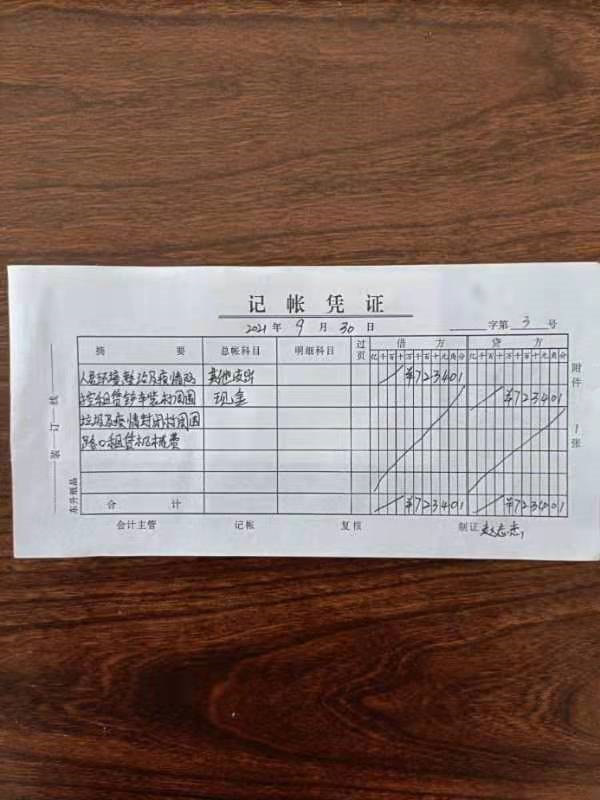 记帐凭证
2021年 9月 30日 字第 3 号
摘要 总帐科目 明细科目 过页 借方 贷方
亿千百十万千百十元角分 亿千百十万千百十元角分
人居环境整治及疫情防 其他支出 ¥723401
控租赁铲车装村周围 现金 ¥723401
垃圾及疫情封闭村周围
路口租赁机械费
合计 ¥723401 ¥723401
附件 1 张
装订线
东升纸品
会计主管 记帐 复核 制证